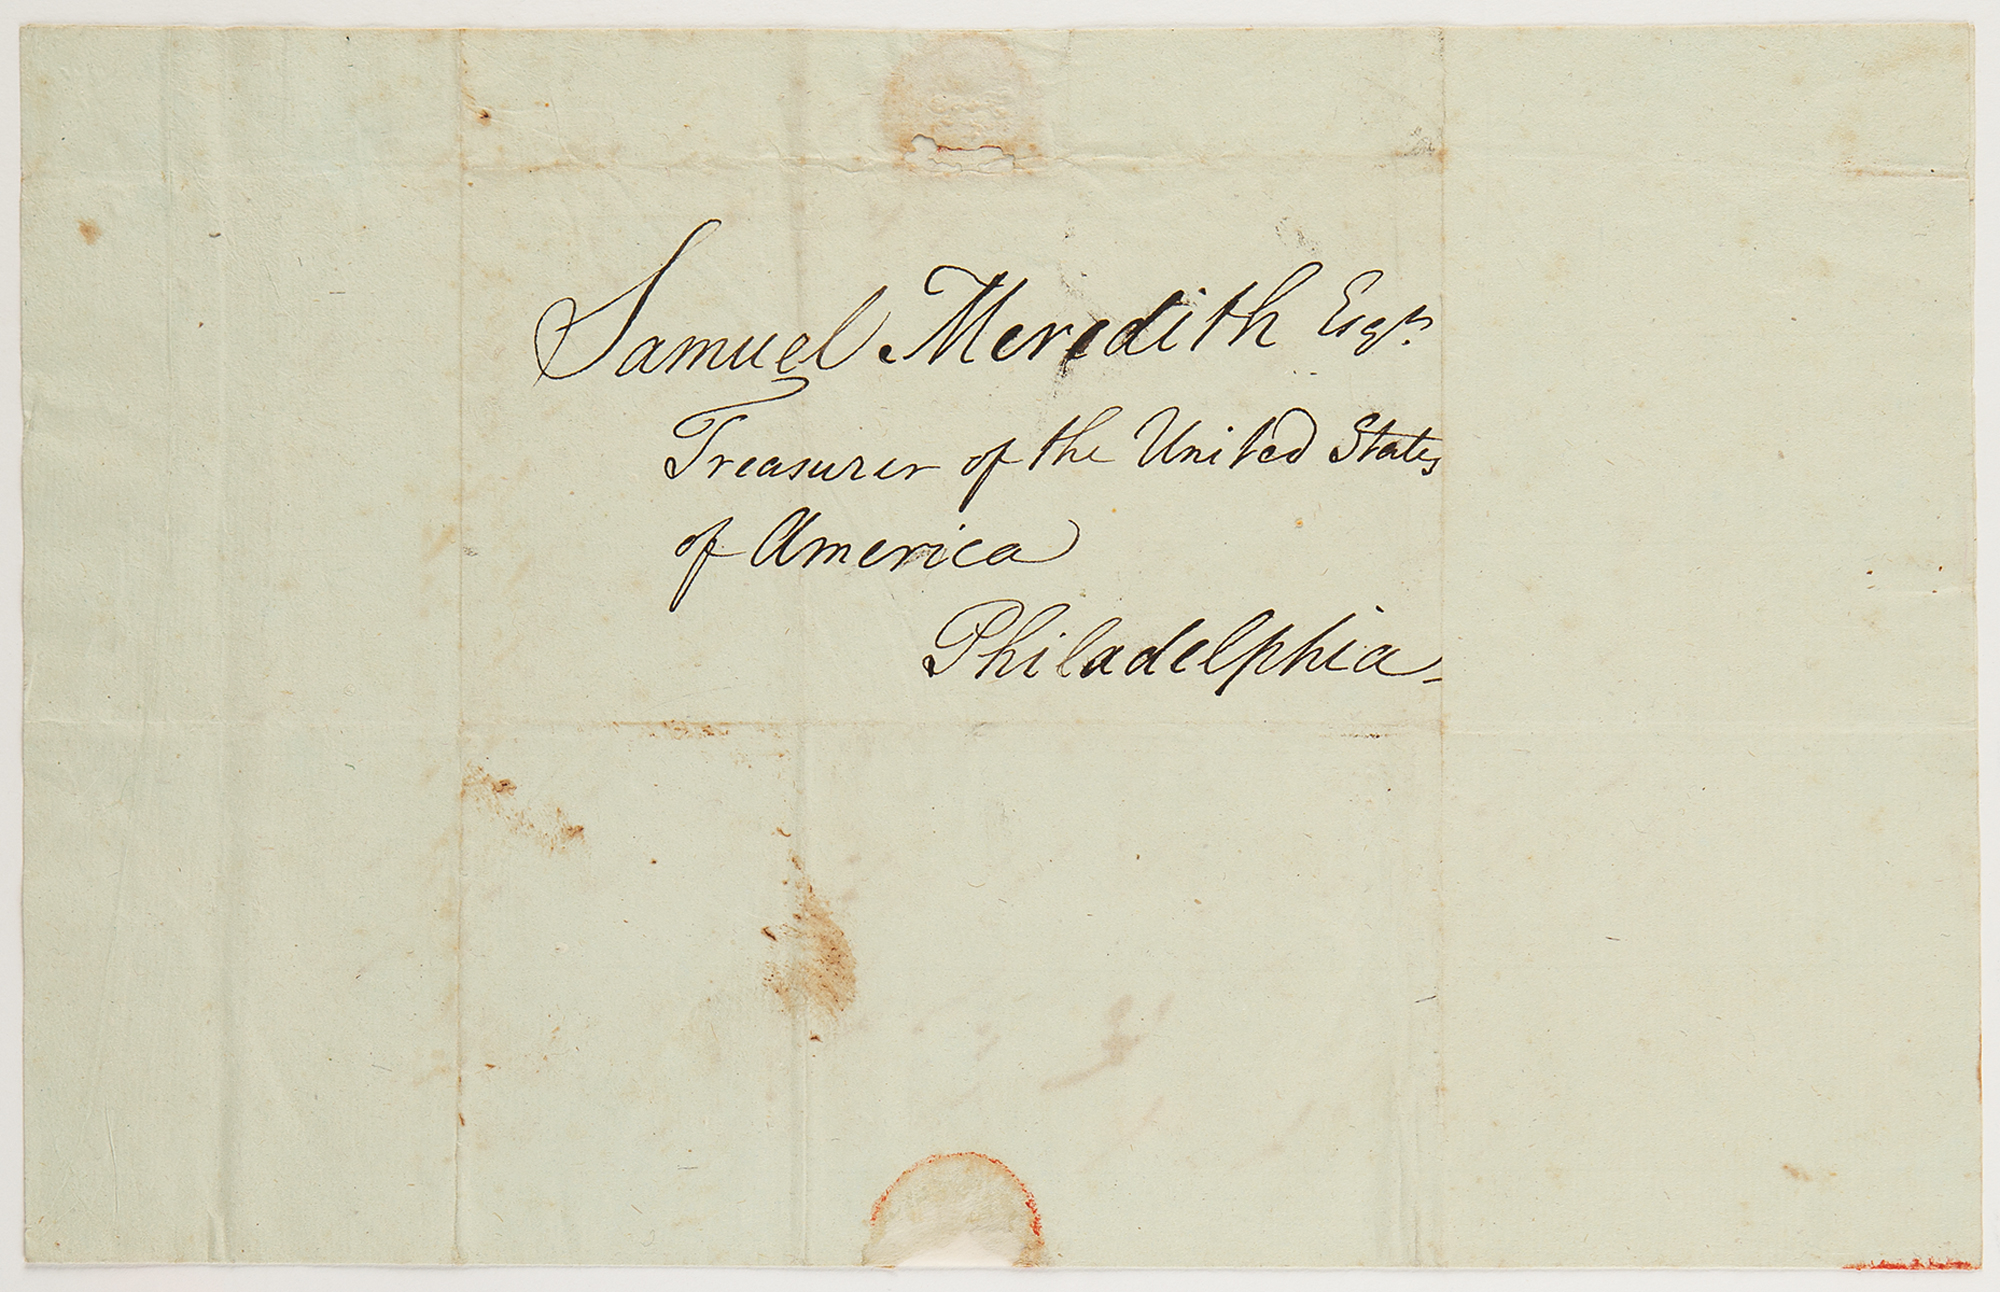 Samuel Meredith Esqr.
Treasurer of the United States
of America
Philadelphia